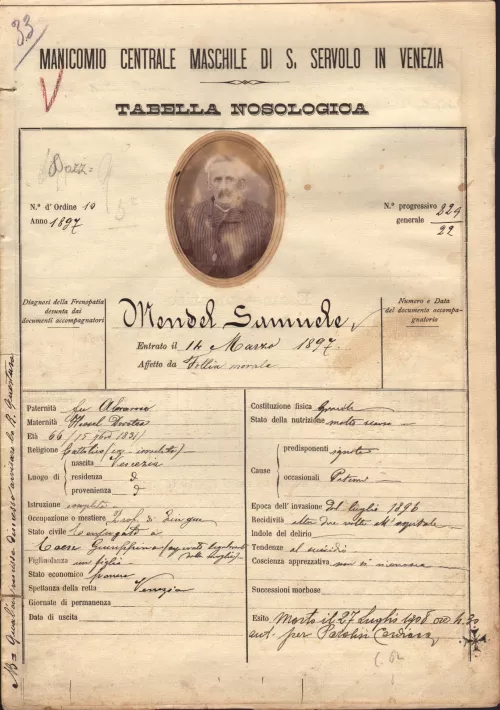 33
MANICOMIO CENTRALE MASCHILE DI S. SERVOLO IN VENEZIA
TABELLA NOSOLOGICA
N.° d' Ordine 10
Anno 1897
N.° progressivo 229
generale 22
Diagnosi della Frenopatia
desunta dai
documenti accompagnatori
Mendel Samuele
Entrato il 14 Marzo 1897
Affetto da Follia morale
Numero e Data
del documento accompa-
gnatorio
Paternità fu Abramo
Maternità
Età 66
Religione Cattolica (ex israelita)
Luogo di
nascita Venezia
residenza
provenienza
Istruzione
Occupazione o mestiere Prof. di Lingue
Stato civile Coniugato a
Coen Giuseppina
Figliuolanza un figlio
Stato economico povero
Spettanza della retta Venezia
Giornate di permanenza
Data di uscita
Costituzione fisica
Stato della nutrizione molto
Cause
predisponenti ignote
occasionali
Epoca dell' invasione Dal luglio 1896
Recidività altre due volte all'ospitale
Indole del delirio
Tendenze al suicidio
Coscienza apprezzativa non si
Successioni morbose
Esito Morto il 27 Luglio
ant. per Paralisi Cardiaca